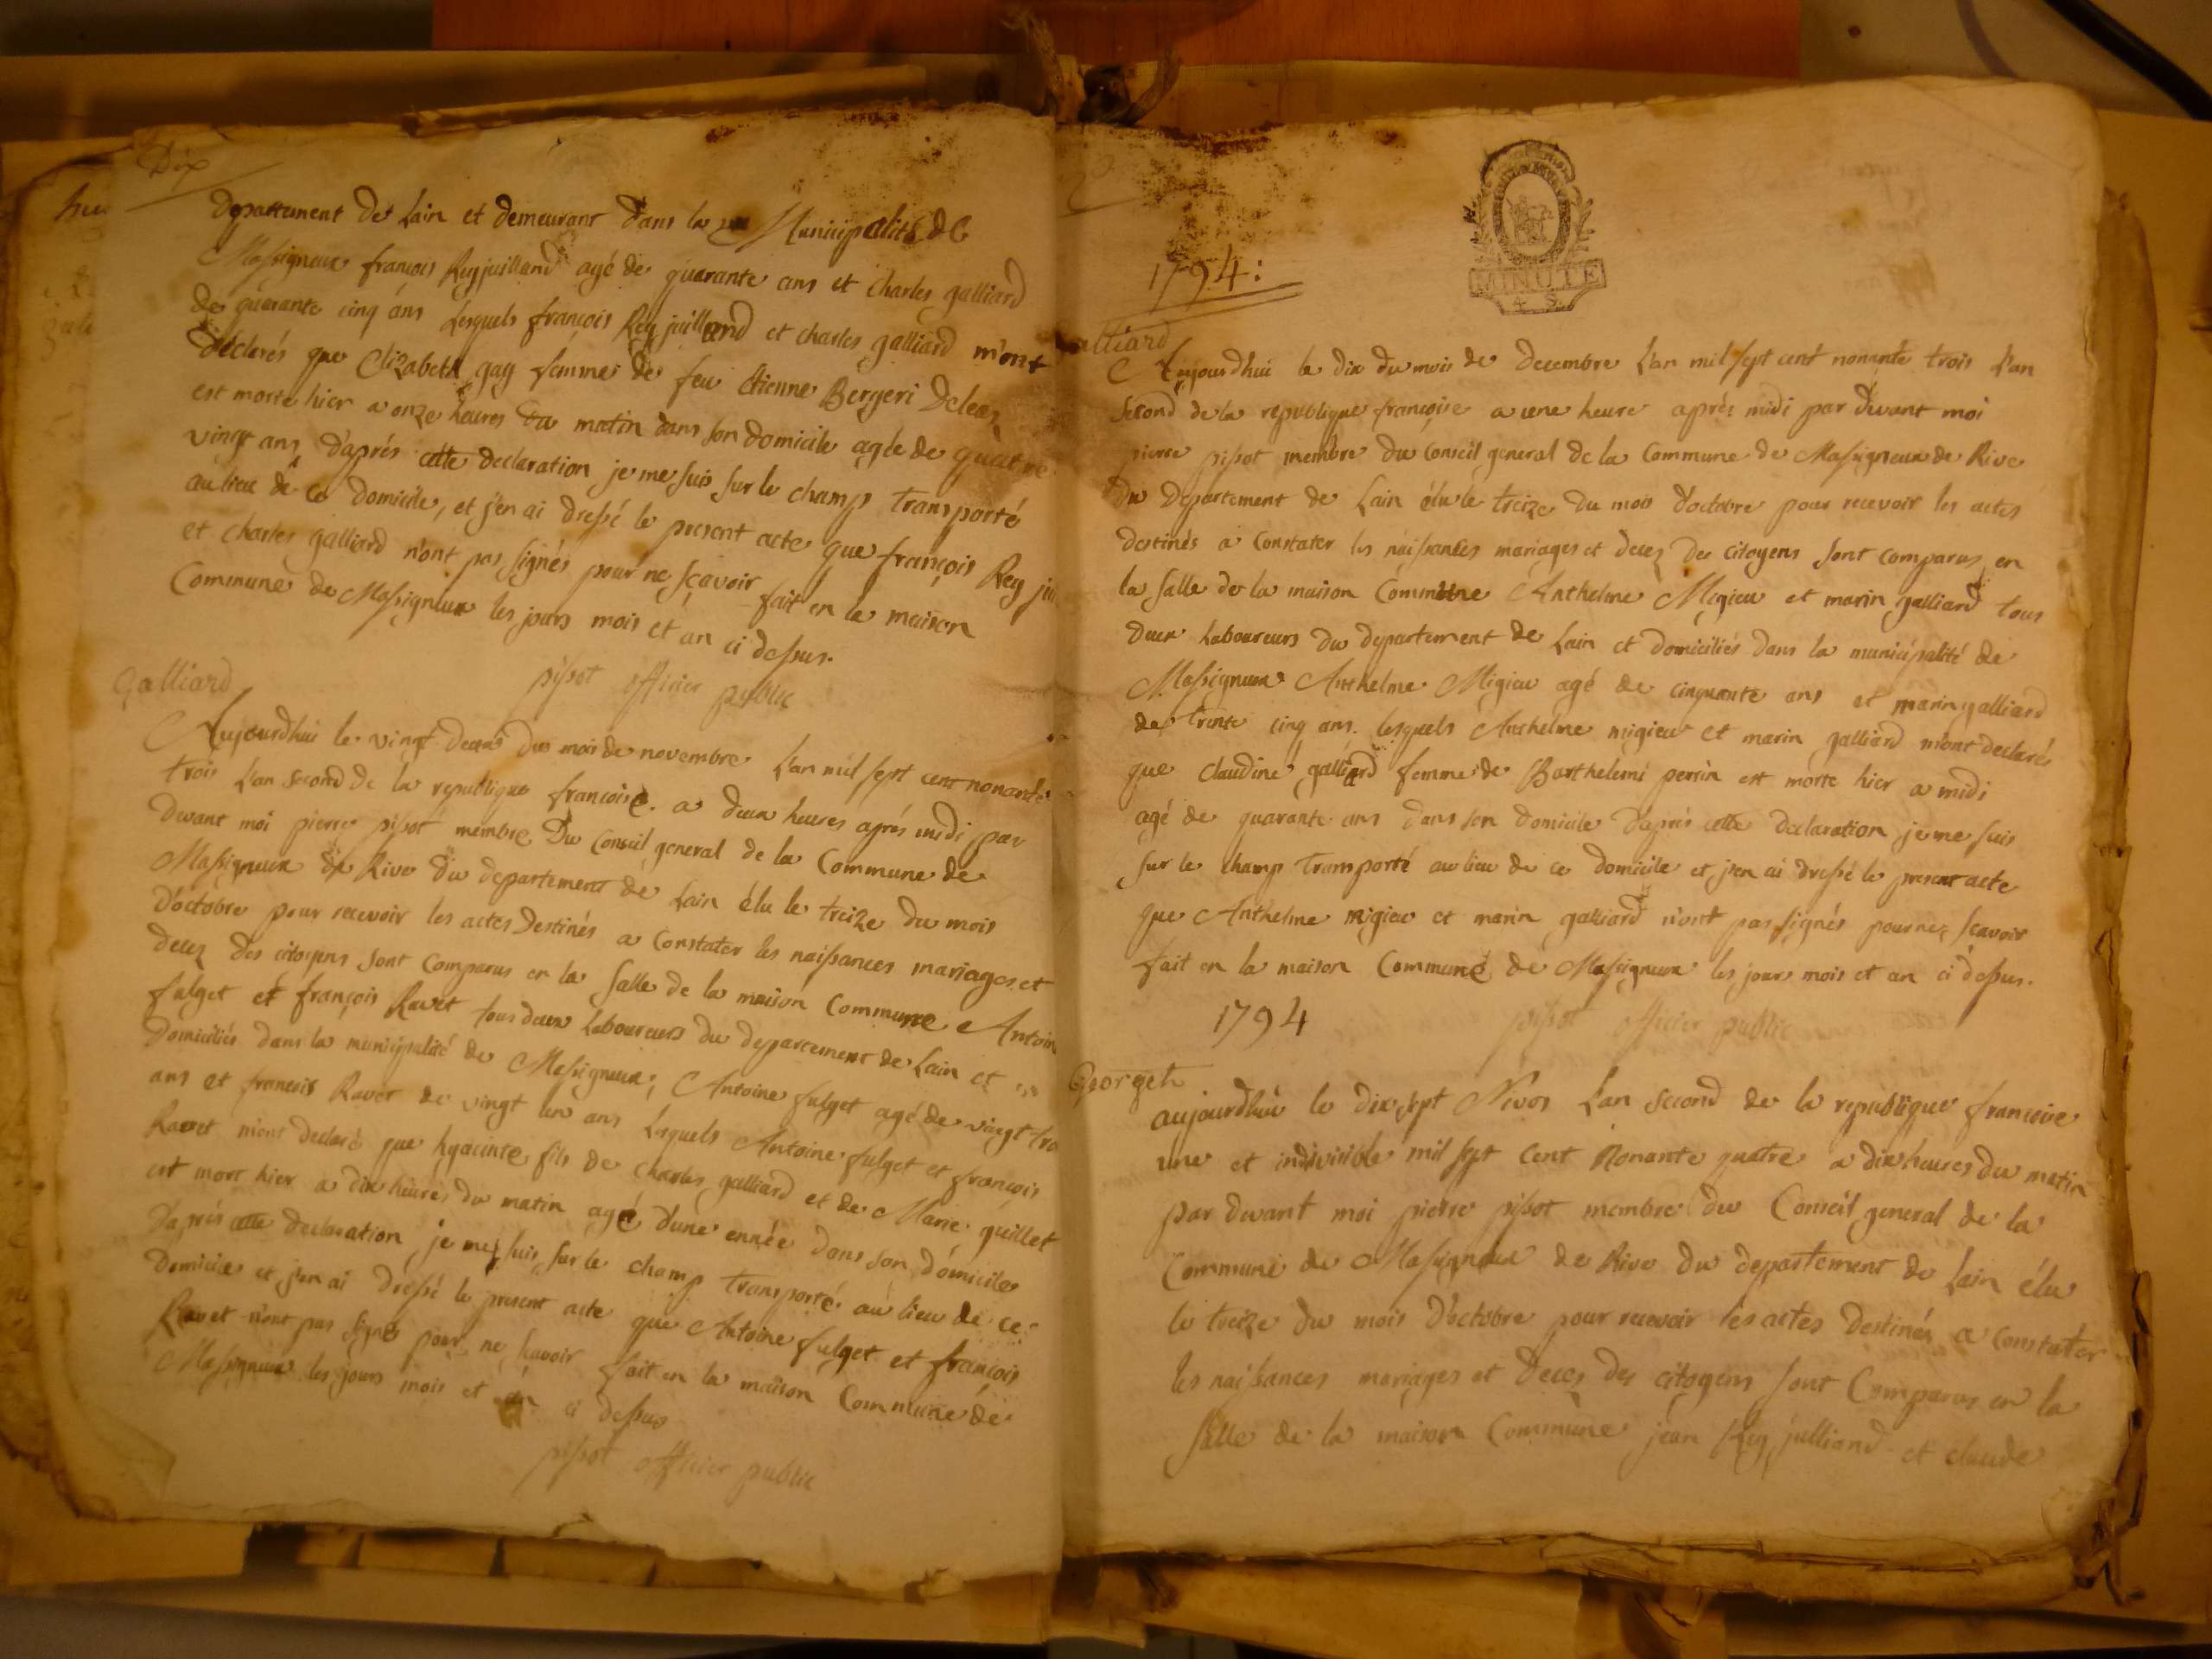 Dix
Departtement de Lain et demeurant dans la Municipalité de
Massigneux françois Reyjuilland agé de quarante ans et charles galliard
de quarante cinq ans Lesquels françois Rey juilland et charles galliard m'ont
déclarés que Elizabeth gay femme de feu étienne Bergeri
est morte hier a onze heures du matin dans son domicile agée de quatre
vingt ans, d'aprés cette declaration je me suis sur le champ transporté
au lieu de ce domicile, et j'en ai dressé le present acte que françois Rey jui
et charles galliard n'ont pas signés pour ne sçavoir fait en la maison
Commune de Massigneux les jours mois et an ci dessus.
pissot officier public
Galliard
Aujourdhui le vingt deux du mois de novembre L'an mil sept cent nonante
trois L'an second de la republique francoise. a deux heures aprés midi par
devant moi pierre pissot membre Du Conseil general de la Commune de
Massigneux de Rive du departement de Lain élu le treize du mois
D'octobre pour recevoir les actes Destinés a Constater les naissances mariages et
decez des citoyens sont comparus en la salle de la maison Commune Antoin
fulget et françois Ravet tous deux Laboureurs du departement de Lain et
Domiciliés dans la municipalité de Massigneux; Antoine fulget agé de vingt tro
ans et francois Ravet de vingt un ans Lesquels Antoine fulget et françois
Ravet m'ont declaré que hyacinte fils de Charles galliard et de Marie guillet
est mort hier a dix heures du matin agé d'une année dans son domicile
D'aprés cette declaration je me suis sur le champ transporté au lieu de ce
domicile et j'en ai dressé le present acte que Antoine fulget et françois
Ravet n'ont pas signé pour ne scavoir fait en la maison Commune de
Massigneux les jours mois et an ci dessus
pissot officier public
MINUTE
4 S.
1794:
alliard
Aujourdhui le dix du mois de decembre L'an mil sept cent nonante trois L'an
second de la republique françoise a une heure aprés midi par devant moi
pierre pissot membre du Conseil general de la Commune de Massigneux de Rive
du Departement de Lain élu le treize du mois d'octobre pour recevoir les actes
destinés a Constater les naissances mariages et decez des citoyens sont comparus en
la salle de la maison Commune Anthelme Migieu et marin galliard tous
deux Laboureurs du departement de Lain et domiciliés dans la municipalité de
Massigneux Anthelme Migieu agé de cinquante ans et marin galliard
de trente cinq ans. lesquels Anthelme migieu et marin galliard m'ont declarés
que claudine galliard femme de Barthelemi perrin est morte hier a midi
agé de quarante ans dans son domicile d'aprés cette declaration je me suis
sur le champ transporté au lieu de ce domicile et j'en ai dressé le present acte
que Anthelme migieu et marin galliard n'ont pas signés pour ne scavoir
fait en la maison Commune de Massigneux les jours mois et an ci dessus.
pissot officier public
1794
Georget
aujourdhui le dix sept Nivos L'an second de la republique francoise
une et indivisible mil sept cent Nonante quatre a dix heures du matin
par devant moi pierre pissot membre du Conseil general de la
Commune de Massigneux de Rive du departement de Lain élu
le treize du mois D'octobre pour recevoir les actes Destinés a constater
les naissances mariages et decez des citoyens sont Comparus en la
salle de la maison Commune jean Rey julliand et claude